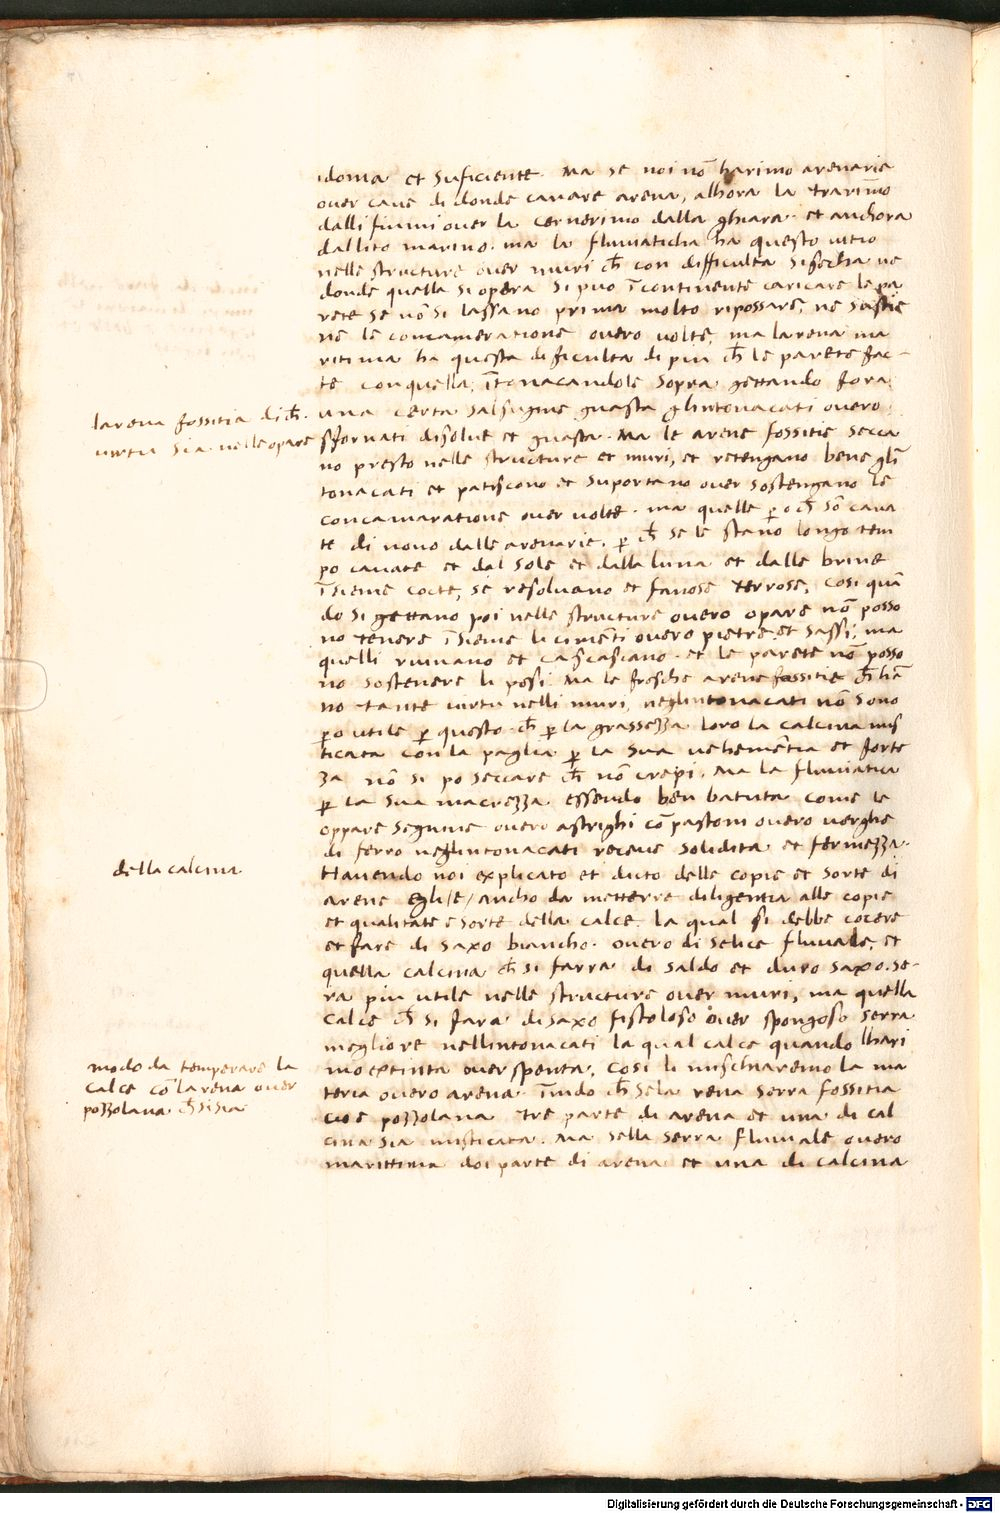 idonia et suficiente. Ma se noi nō harimo arenarie
over cave di donde cavare arena, alhora la trarīmo
dalli fiumi over la cernerimo dalla ghiara. et anchora
dal lito marino. ma la fluviaticha ha questo vitio
nelle structure over muri cħ con difficulta si seccha ne
donde quella si opera si puo īcontinente caricare le pa
rete se nō si lassano prima molto ripossare, ne sostie
ne le concameratione overo volte, ma larena ma
ritima ha questa dificulta di piu cħ le parete fac-
te con quella, ītonacandole sopra gettando fora
larena fossitia di cħ.
virtu sia nelle opare
una certa salsugine guasta glintonacati overo
sfornati disolve et guasta. Ma le arene fossitie secca
no presto nelle structure et muri, et retengano bene glī
tonacati et patiscono et suportano over sostengano le
concamaratione over volte. ma quelle ꝑo cħ sō cava
te di novo dalle arenarie. ꝑ cħ se le stano longo tem
po cavate et dal sole et dalla luna et dalle brine
īsieme cocte, se resolvano et fanose terrose, cosi quā
do si gettano poi nelle structure overo opare nō posso
no tenere īsieme li cimēti overo pietre et sassi, ma
quelli ruinano et cascasciano. et le parete nō posso
no sostenere li pesi. Ma le fresche arene fossitie cħ hā
no tante virtu nelli muri, neglintonacati nō sono
ꝑo utile ꝑ questo. cħ ꝑ la grassezza loro la calcina mis
ticata con la paglia ꝑ la sua vehementia et forte
za nō si po seccare cħ nō crepi. Ma la fluviatica
ꝑ la sua macrezza essendo ben batuta come le
oppare segnine overo astrighi cō pastoni overo verghe
di ferro neglintonacati receve solidita et fermezza.
della calcina
Havendo noi explicato et dicto delle copie et sorte di
arene egli /e/ ancho da metterre diligentia alle copie
et qualitate e sorte della calce. la qual si debbe cocere
et fare di saxo biancho. overo di selice fluvale, et
quella calcina cħ si farra di saldo et duro saxo. se-
ra piu utile nelle structure over muri, ma quella
calce cħ si fara di saxo fistoloso over spongoso serra
megliore nellintonacati la qual calce quando lhari
modo da temperare la
calce cō larena over
pozzolana cħ si sia
mo extinta over spenta, cosi li mischiaremo la ma
teria overo arena. īmdo cħ sela rena serra fossitia
cioe pozzolana tre parte di arena et una di cal
cina sia misticata. Ma sella serra fluviale overo
marittima doi parte di arena et una di calcina
Digitalisierung gefördert durch die Deutsche Forschungsgemeinschaft - DFG